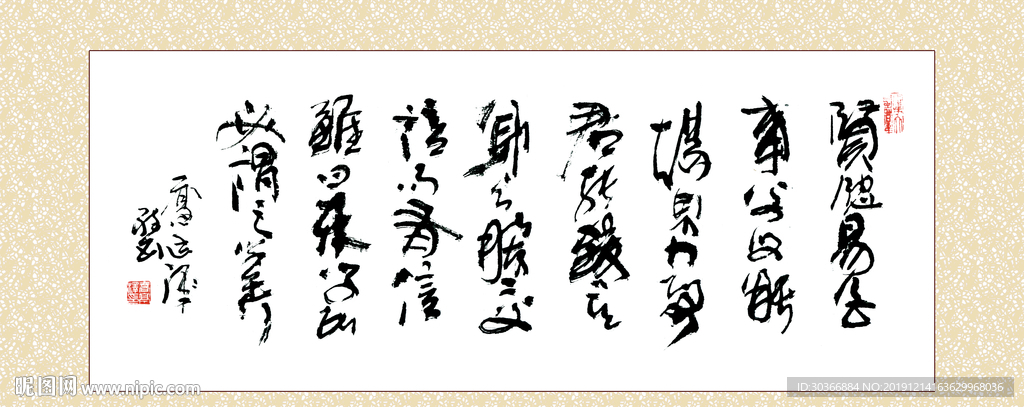 賢賢易色
事父母能
竭其力事
君能致其
身与朋友交
言而有信
雖曰未學吾
必謂之學矣
昵图网 www.nipic.com
ID:30366884 NO:20191214163629968036